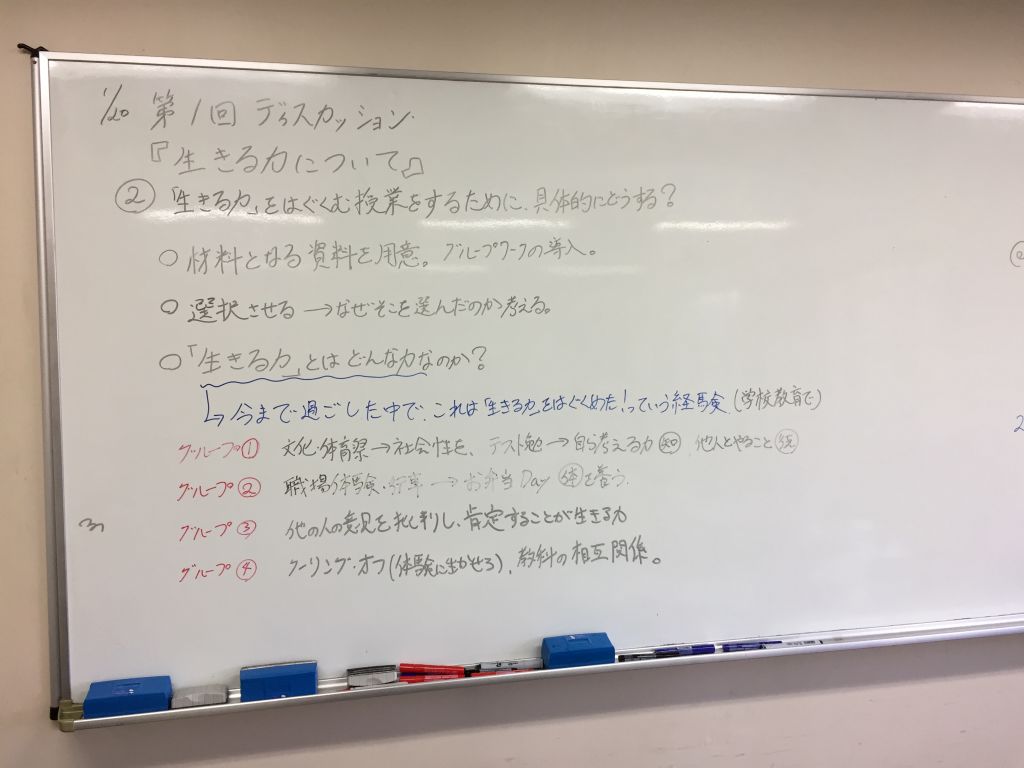 1/20 第1回 ディスカッション.
『生きる力について』
② 「生きる力」をはぐくむ授業をするために、具体的にどうする？
○ 材料となる資料を用意。グループワークの導入。
○ 選択させる →なぜそこを選んだのか考える。
○「生きる力」とは どんな力なのか？
↳ 今まで過ごした中で、これは「生きる力」をはぐくめた！っていう経験 (学校教育で)
グループ① 文化・体育祭→社会性を、テスト勉→自ら考える力 ㊙知 他人とやること
グループ② 職場体験・行事→お弁当Day を養う.
グループ③ 他の人の意見を批判し、肯定することが生きる力
グループ④ クーリング・オフ(体験に生かせる)、教科の相互関係。